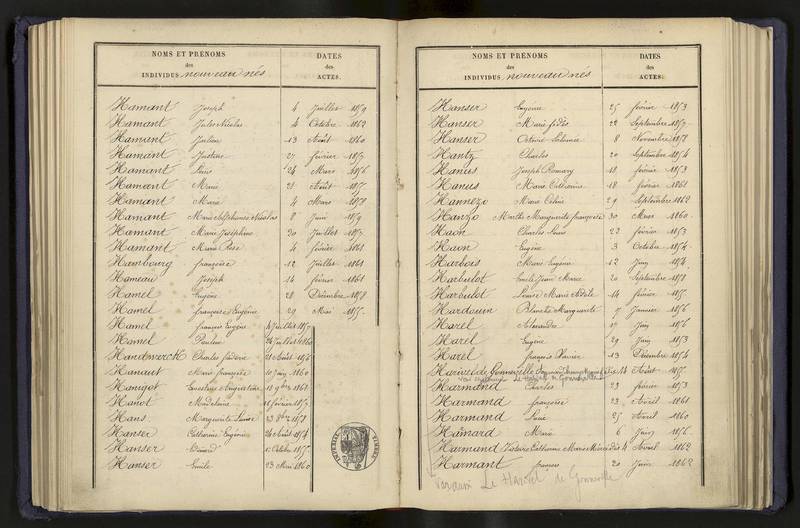 NOMS ET PRÉNOMS
des
INDIVIDUS nouveau nés
DATES
des
ACTES.
Hamant Joseph 4 Juillet 1859
Hamant Jules Nicolas 4 Octobre 1862
Hamant Julien 13 Août 1860
Hamant Justine 27 février
Hamant Louis 24 Mars 1856
Hamant Marie 21 Août
Hamant Marie 4 Mars
Hamant Marie Alphonse Nicolas 8 Juin 1859
Hamant Marie Joséphine 20 Juillet
Hamant Marie Rose 4 février 1861
Hambourg françoise 12 Juillet 1861
Hameau Joseph 14 février 1861
Hamel Eugène 28 Décembre 1858
Hamel françoise Eugénie 29 Mai
Hamel françois Eugène 4 Juillet
Hamel Pauline 24 Juillet 1860
Handwerck Charles 21 Août
Hanaut Marie françoise 10 Juin 1860
Hanigot Ernestine 18 9bre 1861
Hanot Madelaine 16 février
Hans Marguerite Louise 23 8bre 1858
Hanser Catherine Eugénie 24 Août 1854
Hanser Edouard Octobre
Hanser Emile 23 Mai 1860
TIMBRE IMPÉRIAL
NOMS ET PRÉNOMS
des
INDIVIDUS nouveau nés
DATES
des
ACTES.
Hanser Eugène 25 février 1853
Hanser Marie 28 Septembre
Hanser Octavie 8 Novembre 1858
Hantz Charles 20 Septembre 1854
Hanus Joseph Romary 18 février 1853
Hanus Marie Catherine 18 février 1861
Hannezo Marie Céline 29 Septembre 1862
Hanzo Marthe Marguerite françoise 30 Mars 1860
Haon Charles Louis 22 février 1853
Haon Eugène 3 Octobre 1854
Harbois Marie Eugénie 12 Juin 1854
Harbulot Emile Jean Marie 20 Septembre 1858
Harbulot Louise Marie 14 février
Hardouin Blanche Marguerite 7 Janvier 1856
Harel Alexandre Juin 1856
Harel Eugène 29 Juin 1853
Harel françois Xavier 13 Décembre 1854
Harivel de Gonneville 14 Août
voir Le Harivel de Gonneville
Harmand Charles 23 février 1853
Harmand françoise 23 Avril 1861
Harmand Luce 25 Avril 1860
Harmand Marie 6 Juin 1856
Harmand Catherine Marie 4 Avril 1862
Harmant françois 20 Juin 1862
Voir aussi Le Harivel de Gonneville